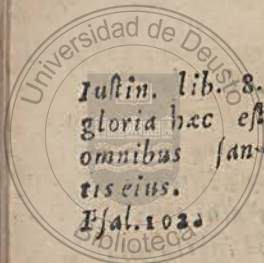 Universidad de Deusto
Iuſtin. lib. 8.
gloria hæc eſt
omnibus ſan-
tis eius.
Pſal.102.
Biblioteca